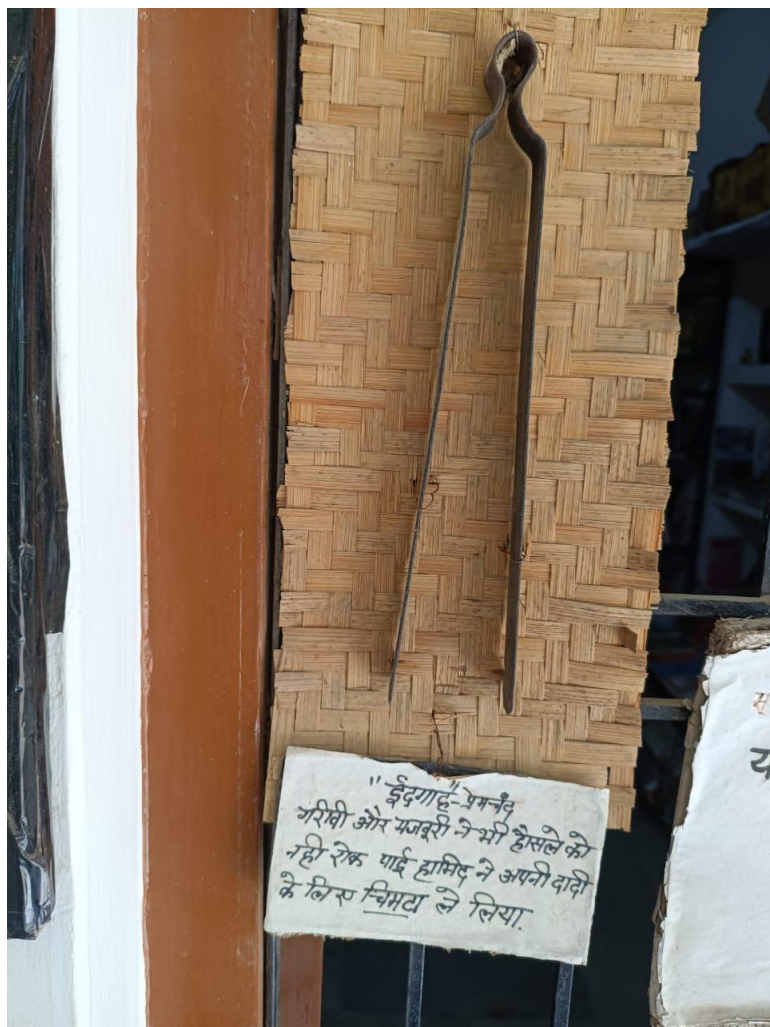 "ईदगाह"-प्रेमचंद
गरीबी और मजबूरी ने भी हौसले को
नही रोक पाई हामिद ने अपनी दादी
के लिए चिमटा ले लिया.